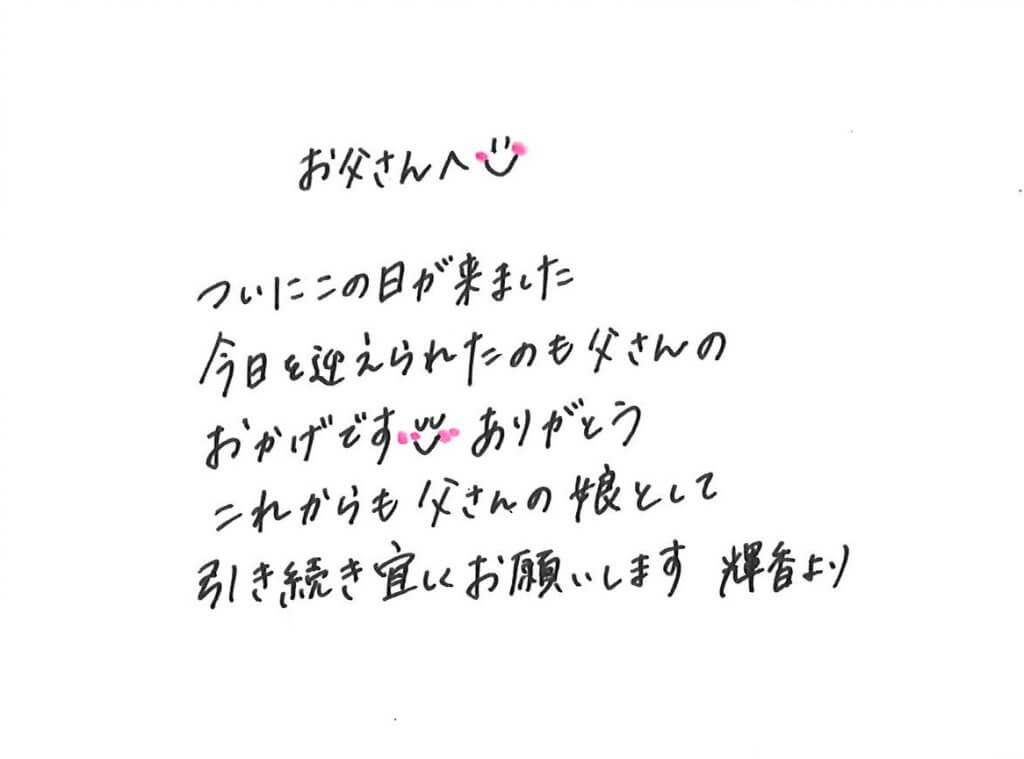 お父さんへ
ついにこの日が来ました
今日を迎えられたのも父さんの
おかげです ありがとう
これからも父さんの娘として
引き続き宜しくお願いします 輝香より